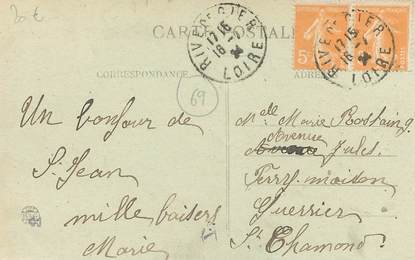 20 €
CARTE POSTALE
CORRESPONDANCE
69
RIVE DE GIER
17 15
16 -1
LOIRE
RIVE DE GIER
17 15
16 -1
LOIRE
5
Un bonjour de
St Jean
mille baisers
Marie
Melle Marie Rostaing
Avenue
Jules
Ferry maison
Guerrier
St Chamond